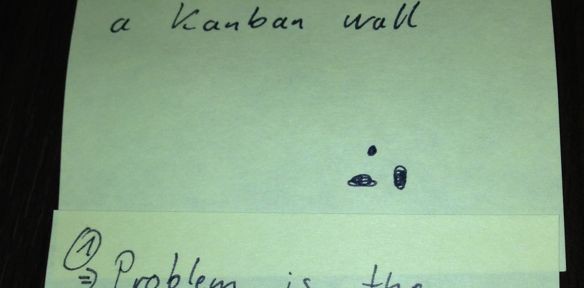 a Kanban wall
①
⇒ Problem is the